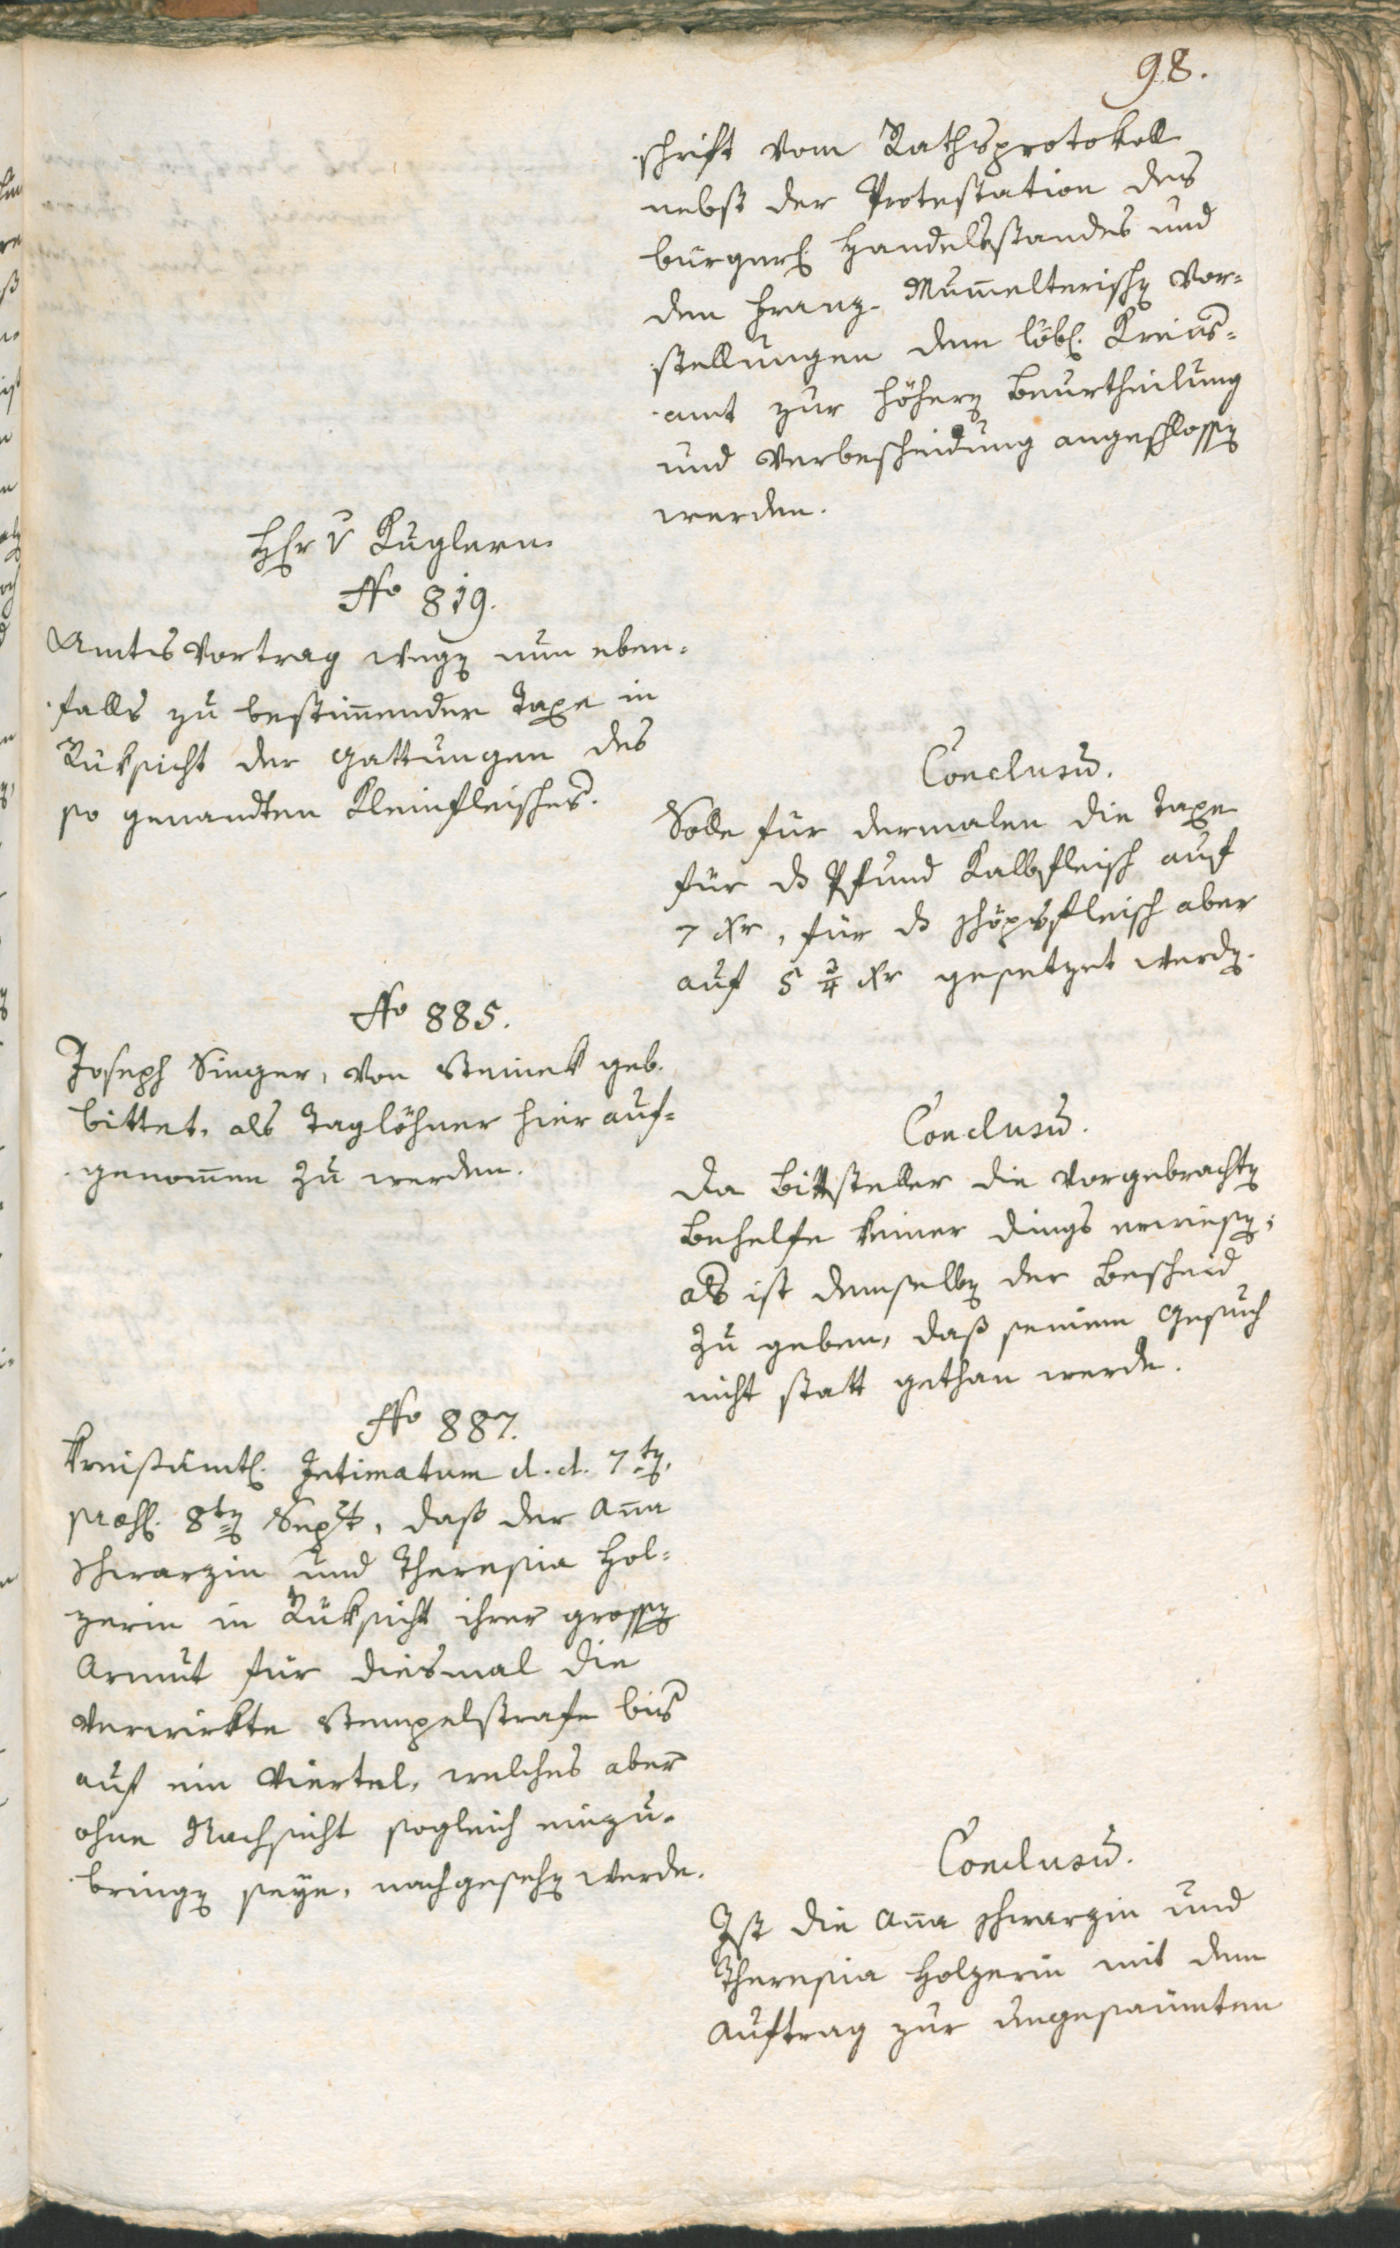 98.
schrift vom Rathsprotokoll
nebst der Protestation des
bürgerl. Handelsstandes und
den Franz Mum̅elterisch. Vor=
stellungen dem löbl. Kreis=
amt zur höhern Beurtheilung
und Verbescheidung angeschlossen
werden.
Hr v Kuglern.
No 819.
Amts Vortrag wegen nun eben=
falls zu bestim̅ender Taxe in
Rüksicht der Gattungen des
so genandten Kleinfleisches.
Conclusu̅.
Solle für dermalen die Taxe
für ds Pfund Kalbfleisch auf
7 xr, für ds Schöpsfleisch aber
auf 5 3/4 xr gesetzet werden.
No 885.
Joseph Singer, von Steinek geb.
bittet, als Taglöhner hier auf=
genom̅en zu werden.
Conclusu̅.
Da Bittsteller die vorgebrachten
Behelfe keiner dings erwiesen;
als ist demselben der Bescheid
zu geben, daß seinem Gesuch
nicht statt gethan werde.
No 887.
Kreisämtl. Intimatum d. d. 7ten,
præs. 8ten Sept, daß der An̅a
Schwarzin und Theresia Hol=
zerin in Rüksicht ihrer grossen
Armut für diesmal die
verwirkte Stempelstrafe bis
auf ein Viertel, welches aber
ohne Nachsicht sogleich einzu=
bringen seye, nachgesehen werde.
Conclusu̅.
Ist die An̅a Schwarzin und
Theresia Holzerin mit dem
Auftrag zur ungesaumten